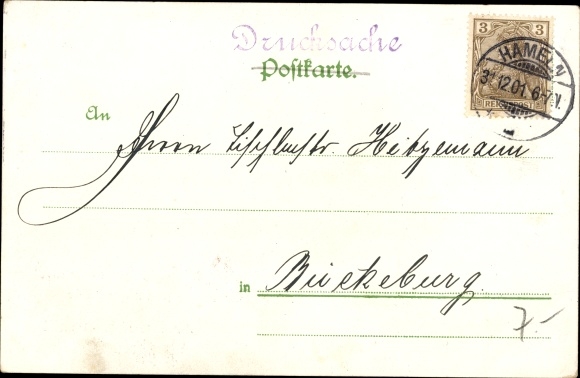 Drucksache
Postkarte.
3 3
HAMELN
31.12.01. 6-7 V.
REICHSPOST
An
Herrn Tischlermstr. Heitzemann
in Bückeburg
7.-